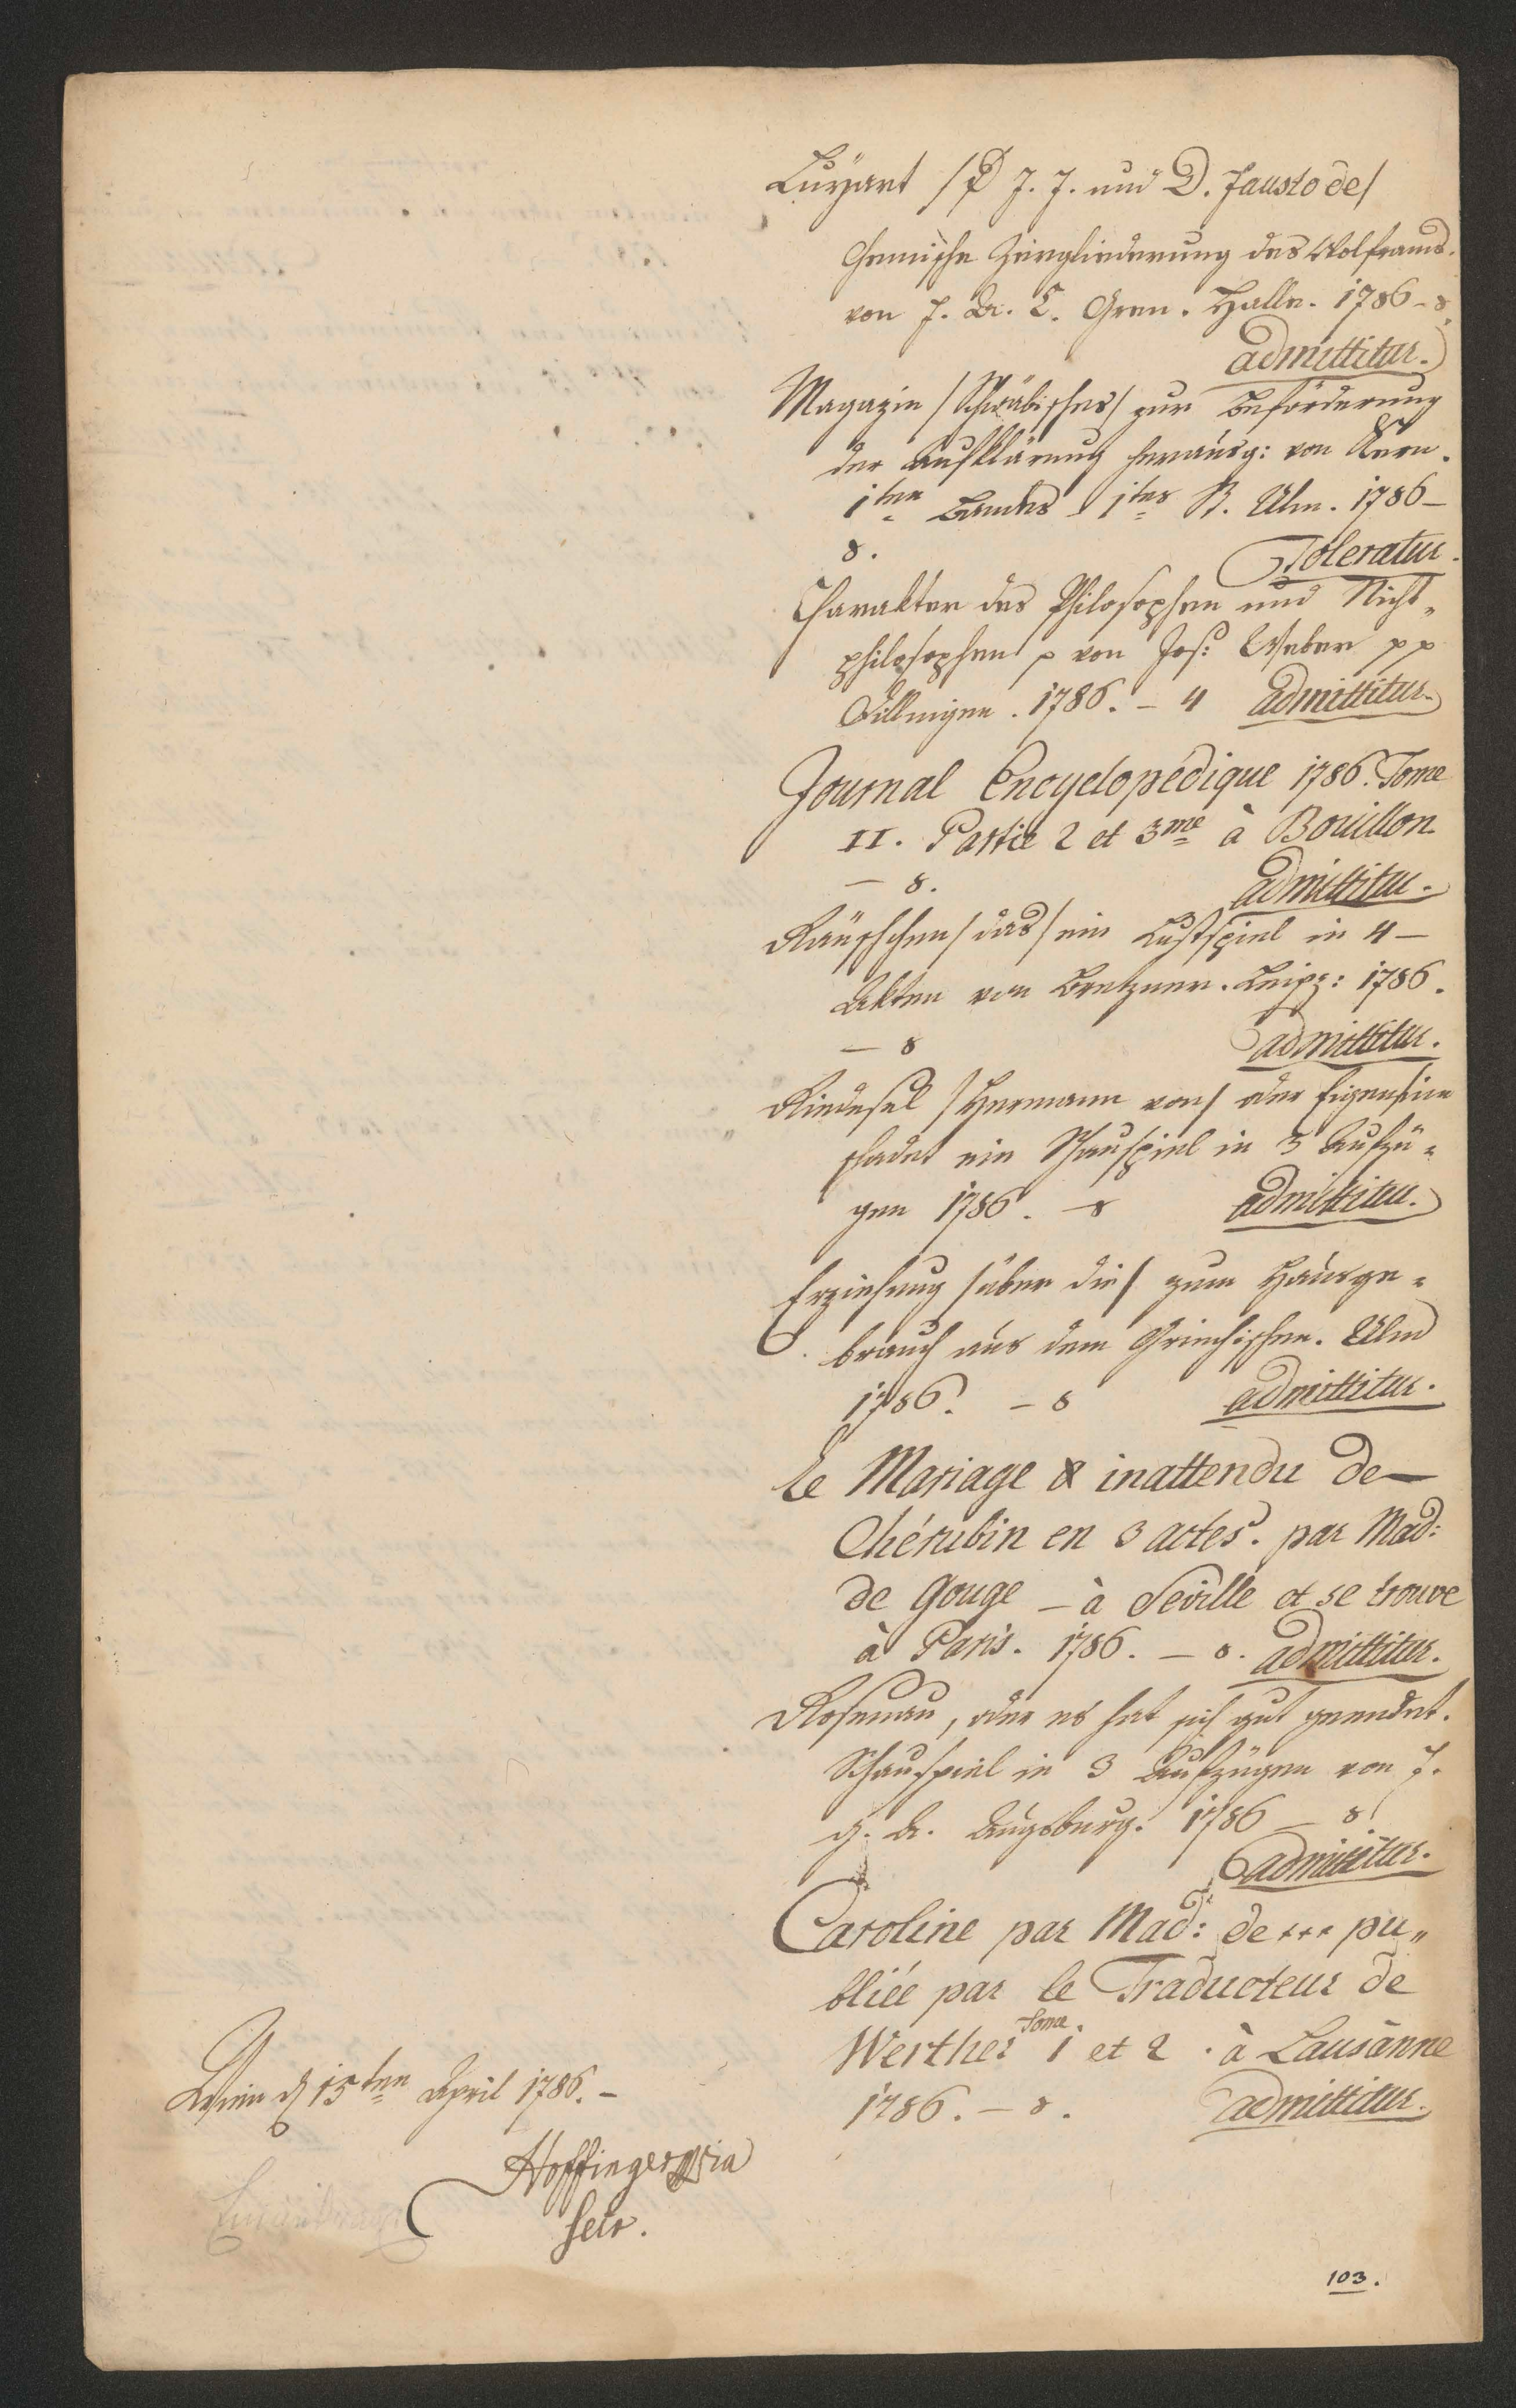 Luyart /D J. J. und D. Fausto de/
Chemische Zergliederung des Wolframs.
von F. A. C. Gren. Halle. 1786 – 8.
admittitur.
Magazin /Schwäbisches/ zur Beförderung
der Aufklärung herausg: von Kern.
1ten Bandes 1tes St. Ulm. 1786 –
8.
Toleratur.
Charakter des Philosophen und Nicht„
philosophen p von Jos: Weber pp
Dillingen. 1786. – 4 admittitur.
Journal Encyclopédique 1786. Tome
II. Partie 2 et 3me à Bouillon
– 8.
admittitur.
Räuschchen /das/ ein Lustspiel in 4 –
Akten von Bretzner. Leipz: 1786.
– 8
admittitur.
Riedesel /Hermann von/ oder Eigensinn
schadet ein Schauspiel in 3 Aufzü„
gen 1786. – 8 admittitur.
Erziehung /über die/ zum Hausge„
brauch aus dem Griechischen. Ulm
1786. – 8 admittitur.
Le Mariage inattendu de –
Chérubin en 3 actes. par Mad:
de Gouge – à Seville et se trouve
à Paris. 1786. – 8. admittitur.
Rosenau, oder es hat sich gut geendet.
Schauspiel in 3 Aufzügen von J.
G. D. Augsburg. 1786 – 8
admittitur.
Caroline par Mad: de *** pu„
bliée par le Traducteur de
Werther Tome 1 et 2. à Lausanne
1786. – 8. admittitur.
Wien d 15ten April 1786. –
Hoffinger
Secr.
103.